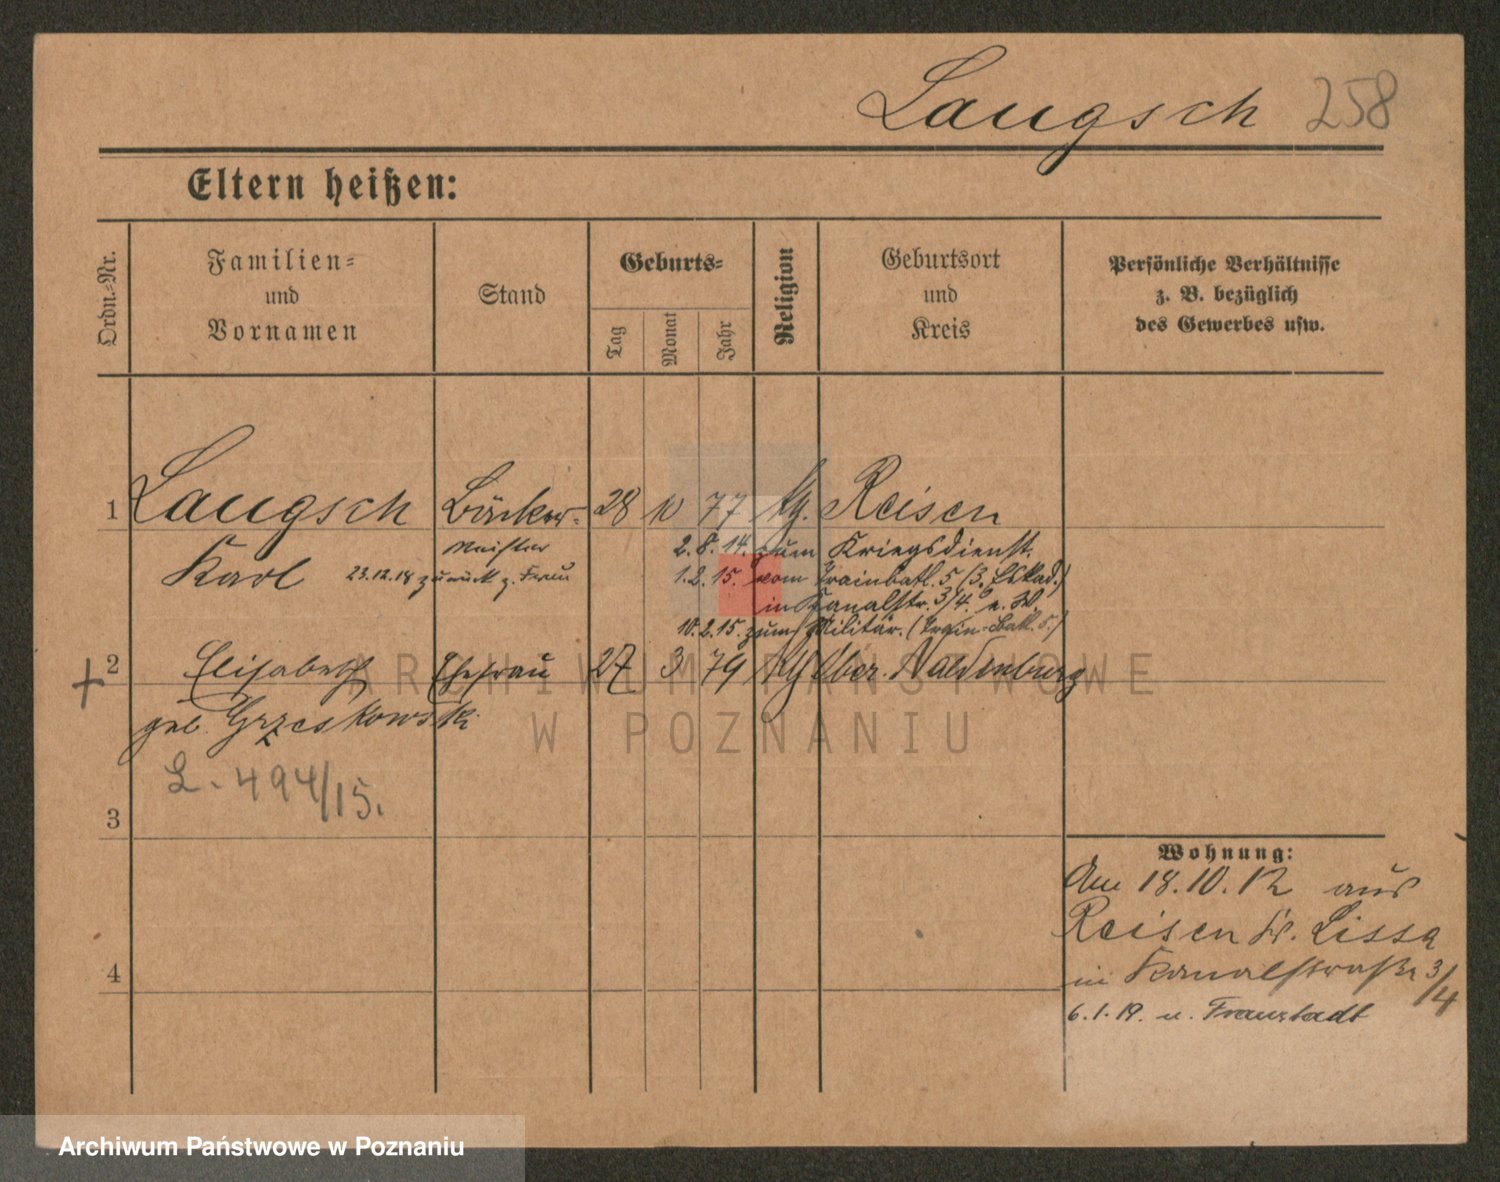 Laugsch 258
Eltern heißen:
Ordn.-Nr.
Familien-
und
Vornamen
Stand
Geburts-
Tag
Monat
Jahr
Religion
Geburtsort
und
Kreis
Persönliche Verhältnisse
z. B. bezüglich
des Gewerbes usw.
1 Laugsch Bäcker- 28 10 77 Reisen
meister 2.8.14. zum Kriegsdienst.
Karl 23.12.18 zurück z. Frau 1.2.15. vom Trainbatl. 5 (3. Eskad.)
in Kanalstr. 3/4.
10.2.15. zum Militär. (Train-Batl. 5.)
2 Elisabeth Ehefrau 27 3 79 Ober. Waldenburg
geb. Grzeskowski
L. 494/15.
3
4
Wohnung:
Am 18.10.12 aus
Reisen Kr. Lissa
in Kanalstraße 3/4
6.1.19. n. Fraustadt
ARCHIWUM PAŃSTWOWE
W POZNANIU
Archiwum Państwowe w Poznaniu